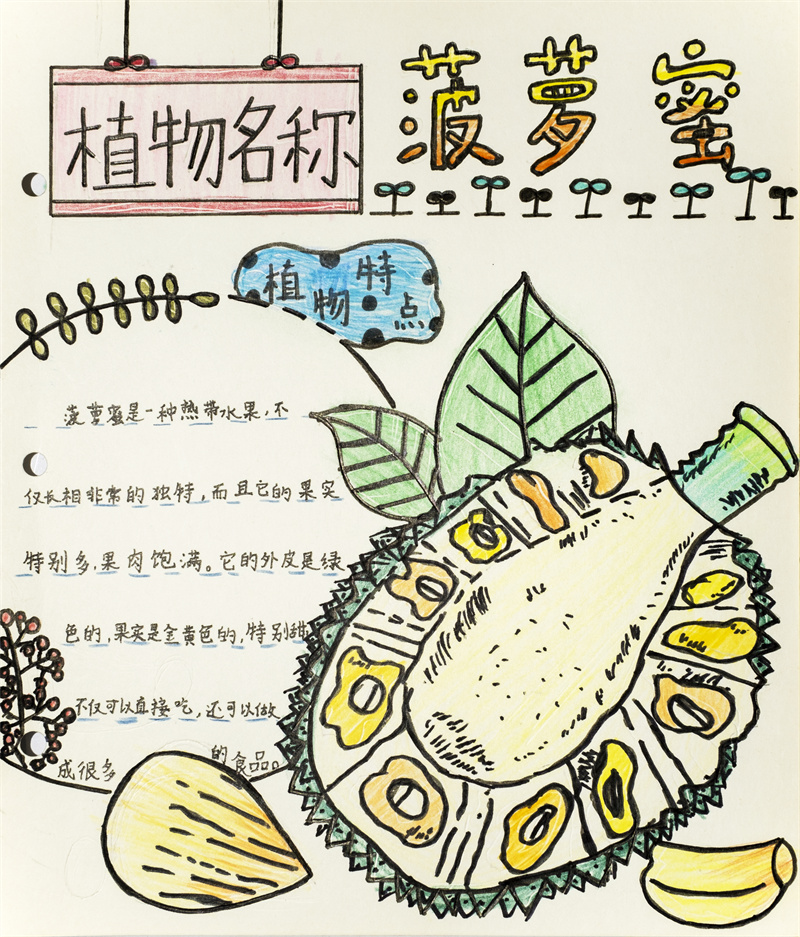 植物名称
菠萝蜜
植物特点
菠萝蜜是一种热带水果，不
仅长相非常的独特，而且它的果实
特别多，果肉饱满。它的外皮是绿
色的，果实是金黄色的，特别甜，
不仅可以直接吃，还可以做
成很多的食品。